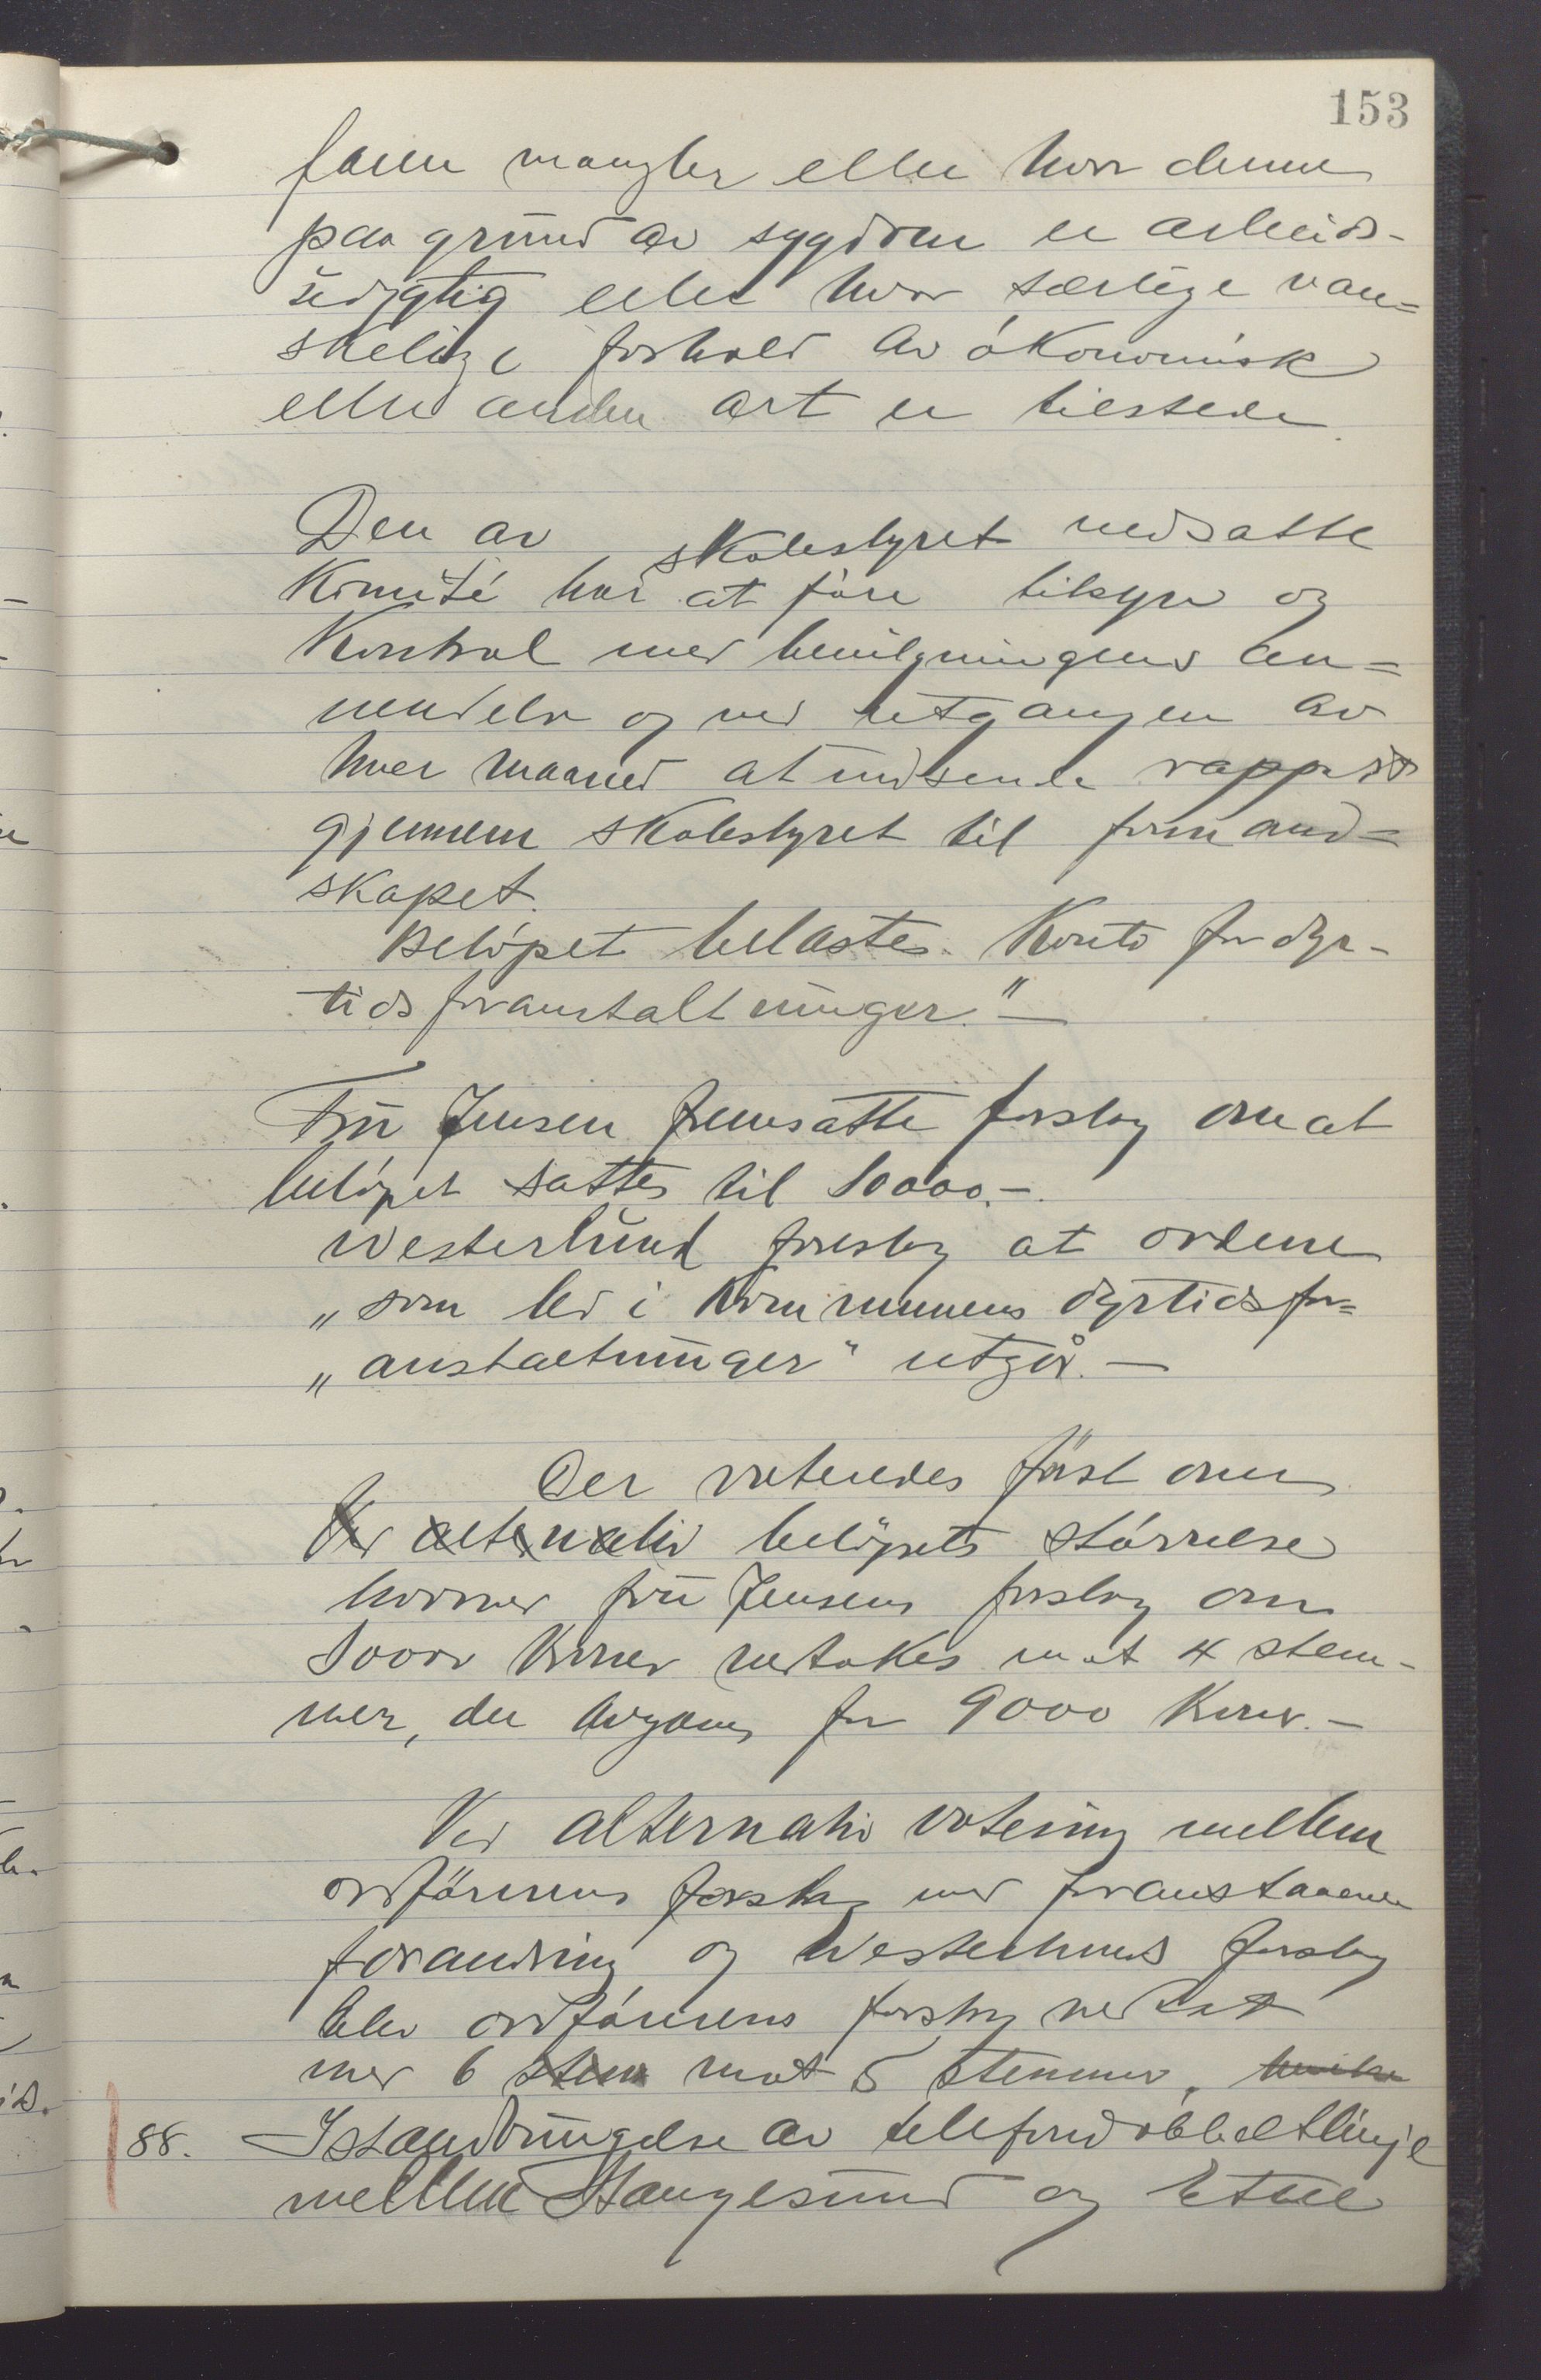 153
faren mangler eller hvor denne
paa grund av sygdom er arbeids-
udygtig eller hvor særlige van=
skelige forhold av økonomisk
eller anden art er tilstede.
Den av skolestyret nedsatte
Komité har at føre tilsyn og
Kontrol med bevilgningens an=
vendelse og ved utgangen av
hver maaned at indsende rapport
gjennem skolestyret til formand=
skapet.
Beløpet belastes Konto for dyr-
tidsforanstaltninger."—
Fru Jensen fremsatte forslag om at
beløpet sattes til 10000.-
Westerlund foreslog at ordene
„som led i Kommunens dyrtidsfor=
„anstaltninger" utgår.—
Der voteredes først om
Ved alternativ beløpets størrelse
hvorved fru Jensens forslag om
10000 Kroner vedtokes mot 4 stem-
mer, der avgaves for 9000 Kroner.—
Ved alternativ votering mellem
ordførerens forslag med foranstaaende
forandring og Westerlunds forslag
blev ordførerens forslag vedtat
med 6 stem mot 5 stemmer.
88. Istandbringelse av telefondobbeltlinje
mellem Haugesund og Etne